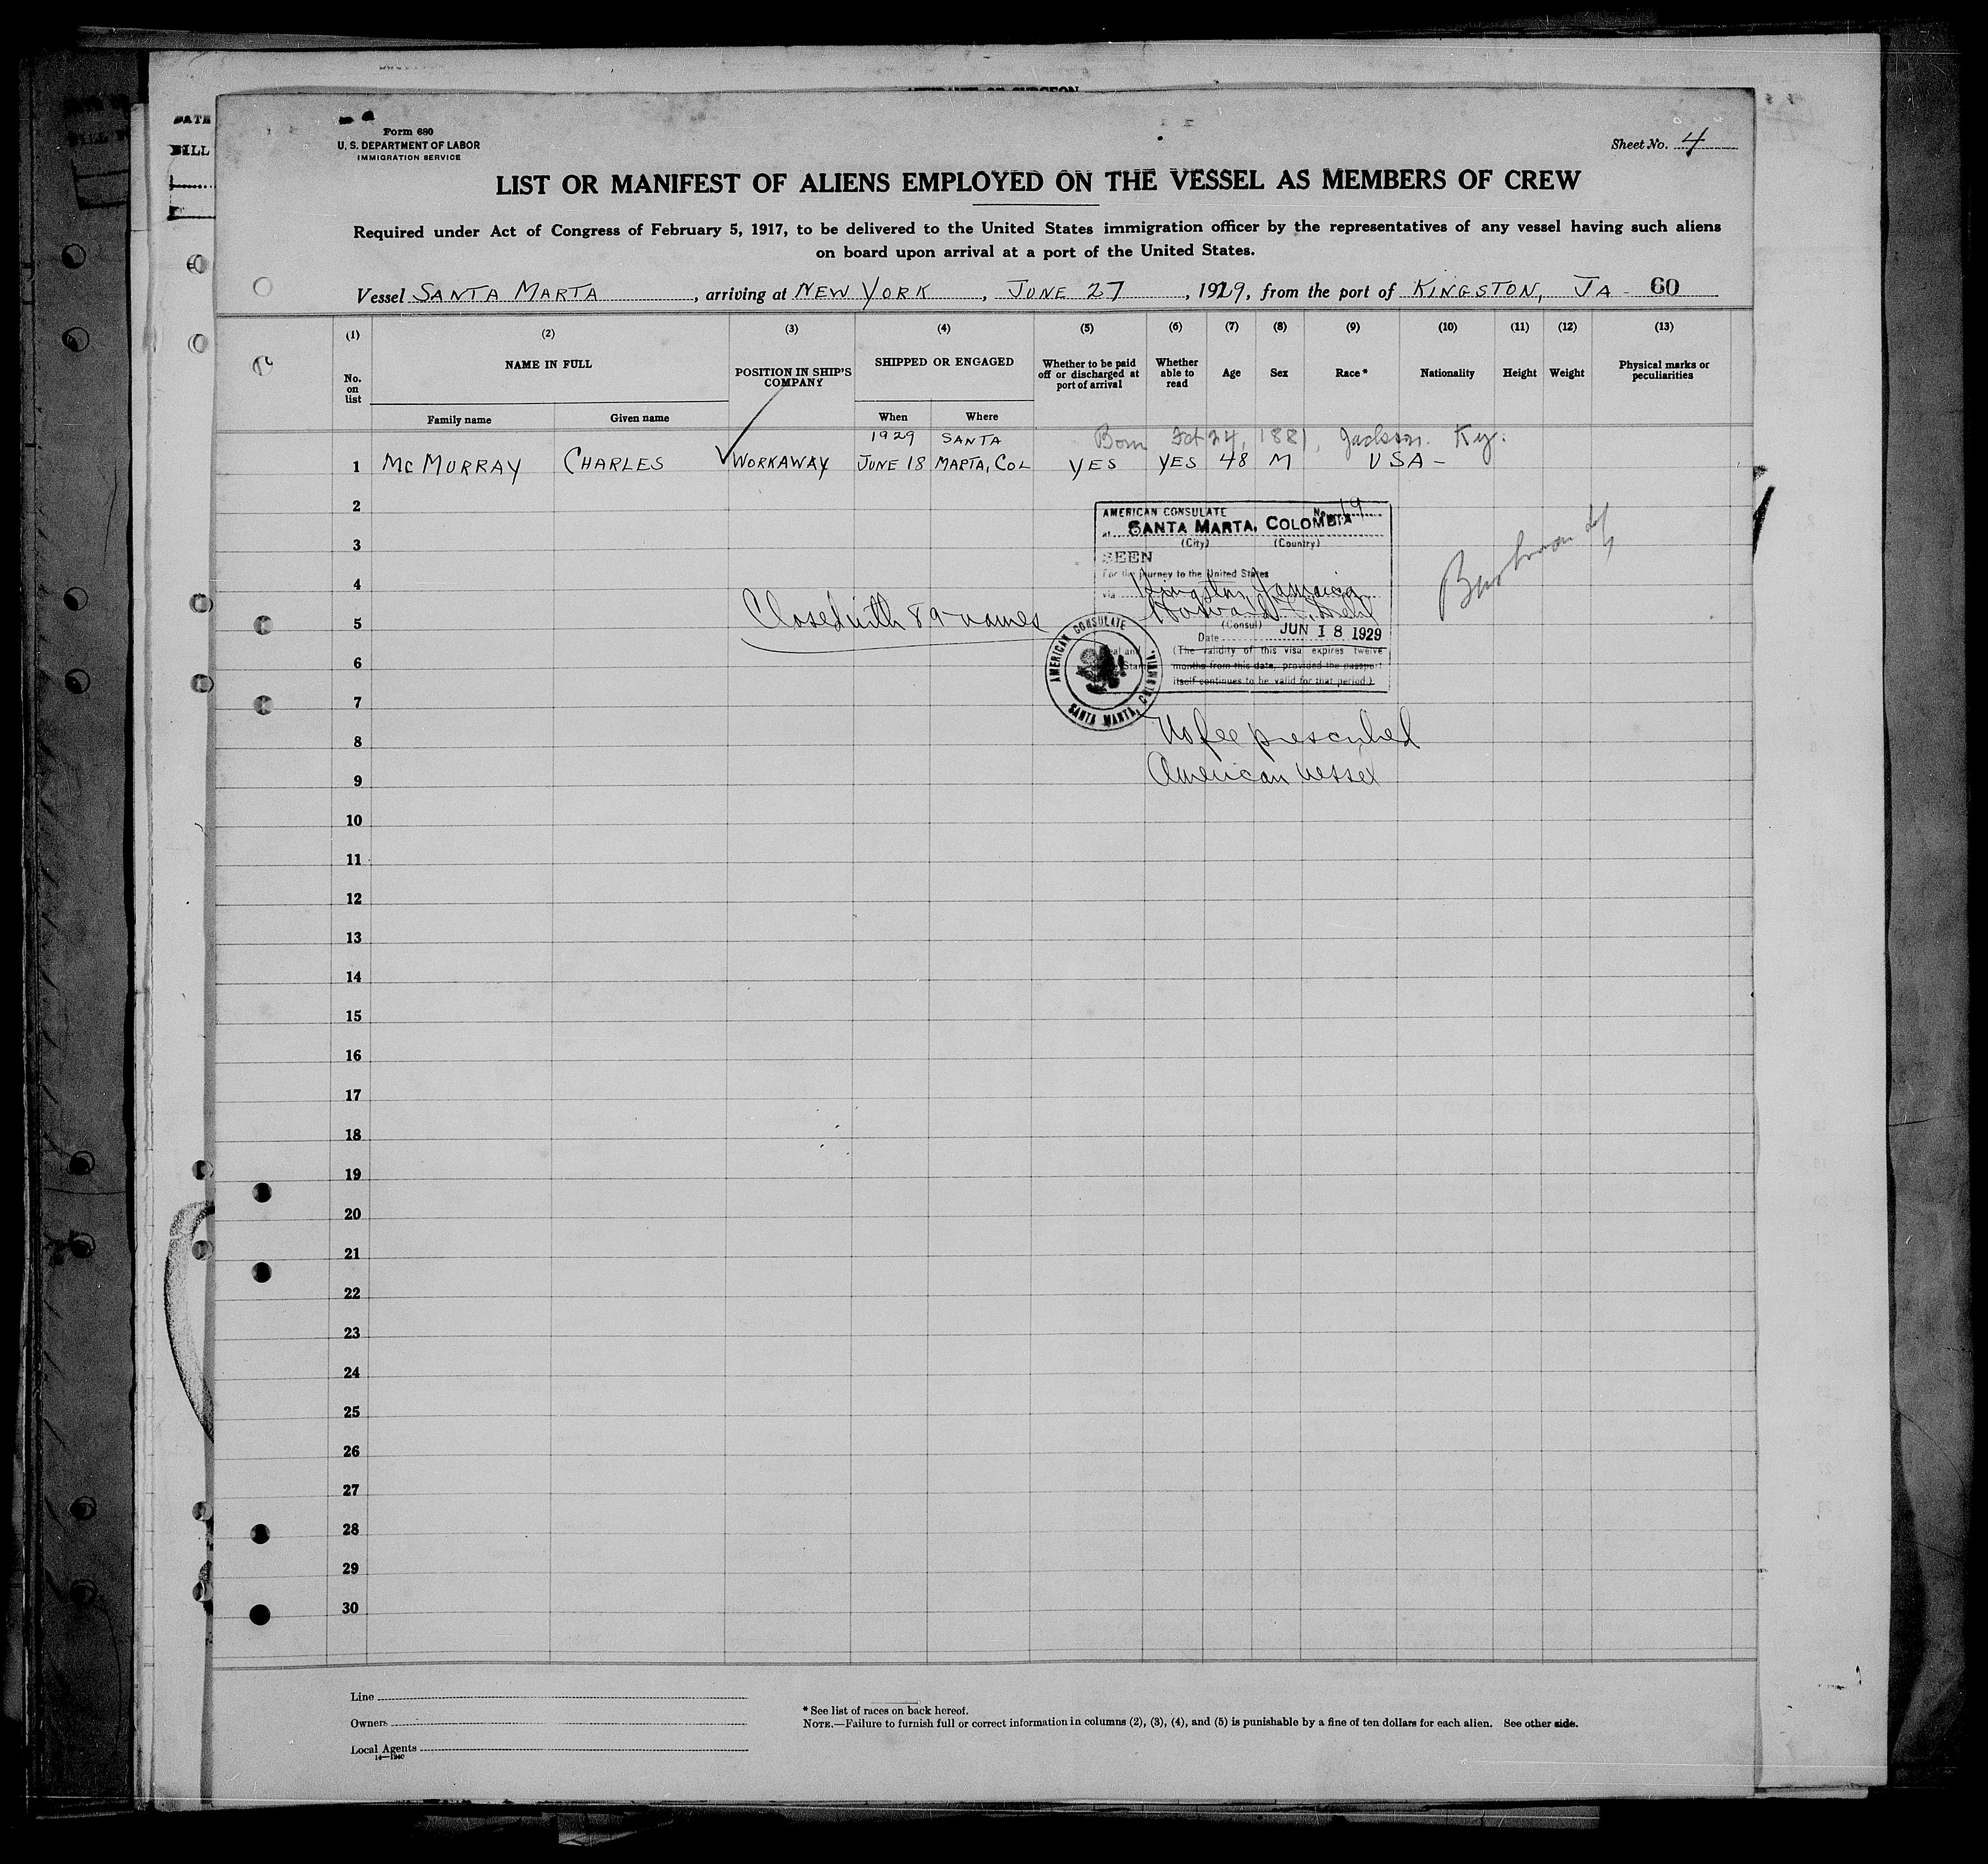 AFFIDAVIT OF SURGEON
DATE
BILL
Form 680
U. S. DEPARTMENT OF LABOR
IMMIGRATION SERVICE
Sheet No. 4
LIST OR MANIFEST OF ALIENS EMPLOYED ON THE VESSEL AS MEMBERS OF CREW
Required under Act of Congress of February 5, 1917, to be delivered to the United States immigration officer by the representatives of any vessel having such aliens
on board upon arrival at a port of the United States.
Vessel SANTA MARTA, arriving at NEW YORK, JUNE 27, 1929, from the port of KINGSTON, JA - 60
(1) (2) (3) (4) (5) (6) (7) (8) (9) (10) (11) (12) (13)
No. on list
NAME IN FULL
Family name Given name
POSITION IN SHIP'S COMPANY
SHIPPED OR ENGAGED
When Where
Whether to be paid off or discharged at port of arrival
Whether able to read
Age
Sex
Race *
Nationality
Height
Weight
Physical marks or peculiarities
1929 SANTA Born 24, 1881, Jackson. Ky.
1 McMURRAY CHARLES WORKAWAY JUNE 18 MARTA, COL YES YES 48 M USA -
2
3
4
5
6
7
8
9
10
11
12
13
14
15
16
17
18
19
20
21
22
23
24
25
26
27
28
29
30
AMERICAN CONSULATE No. 19
at SANTA MARTA, COLOMBIA
(City) (Country)
SEEN
For the journey to the United States
via Kingston, Jamaica
Howard
(Consul)
Date JUN 18 1929
(The validity of this visa expires twelve
months from this date, provided the passport
itself continues to be valid for that period.)
AMERICAN CONSULATE
SANTA MARTA, COLOMBIA.
Closed with 89 names
No fee prescribed
American vessel
Line
Owners
Local Agents
* See list of races on back hereof.
NOTE.—Failure to furnish full or correct information in columns (2), (3), (4), and (5) is punishable by a fine of ten dollars for each alien. See other side.